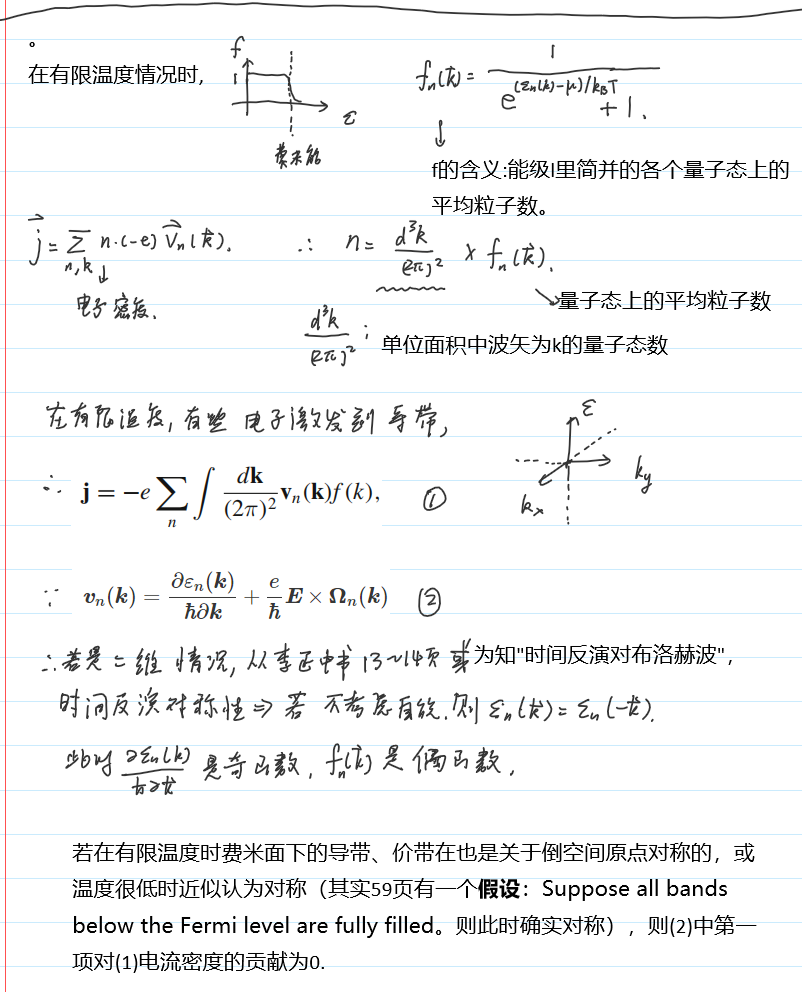 。
在有限温度情况时,
f
1
ε
费米能
fₙ(k⃗) = 1 / (e^{(εₙ(k)-μ)/k_BT} + 1.
↓
f的含义:能级l里简并的各个量子态上的
平均粒子数。
j⃗ = Σ_{n,k} n·(-e) v⃗ₙ(k⃗). ∴ n = d³k/(2π)² × fₙ(k⃗).
↓
电子密度.
量子态上的平均粒子数
d³k/(2π)² : 单位面积中波矢为k的量子态数
在有限温度, 有些电子激发到导带,
ε
k_y
kₓ
∴ j = −e Σₙ ∫ dk/(2π)² vₙ(k)f(k), ①
∵ vₙ(k) = ∂εₙ(k)/ħ∂k + e/ħ E × Ωₙ(k) ②
∴若是二维情况, 从李正中书13~14页或为知"时间反演对布洛赫波",
时间反演对称性⇒若不考虑自旋.则 εₙ(k⃗) = εₙ(-k⃗).
此时 ∂εₙ(k)/ħ∂k⃗ 是奇函数, fₙ(k⃗) 是偶函数,
若在有限温度时费米面下的导带、价带在也是关于倒空间原点对称的，或
温度很低时近似认为对称（其实59页有一个假设：Suppose all bands
below the Fermi level are fully filled。则此时确实对称），则(2)中第一
项对(1)电流密度的贡献为0.